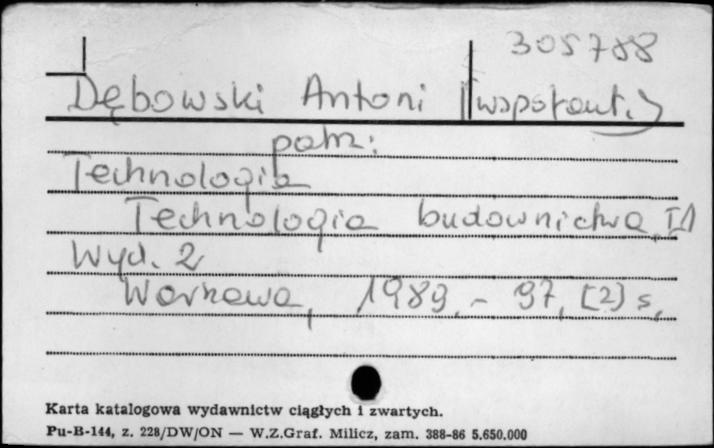 305788
Dębowski Antoni (współaut.)
patrz:
Technologia
Technologia budownictwa
Wyd. 2
Warszawa, 1989. - 97, [2] s.
Karta katalogowa wydawnictw ciągłych i zwartych.
Pu-B-144, z. 228/DW/ON — W.Z.Graf. Milicz, zam. 388-86 5.650.000